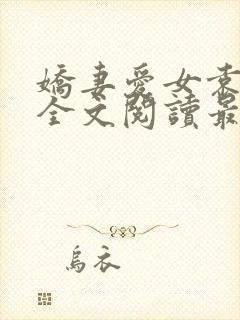 嬌妻愛女索
全文閱讀最
烏衣